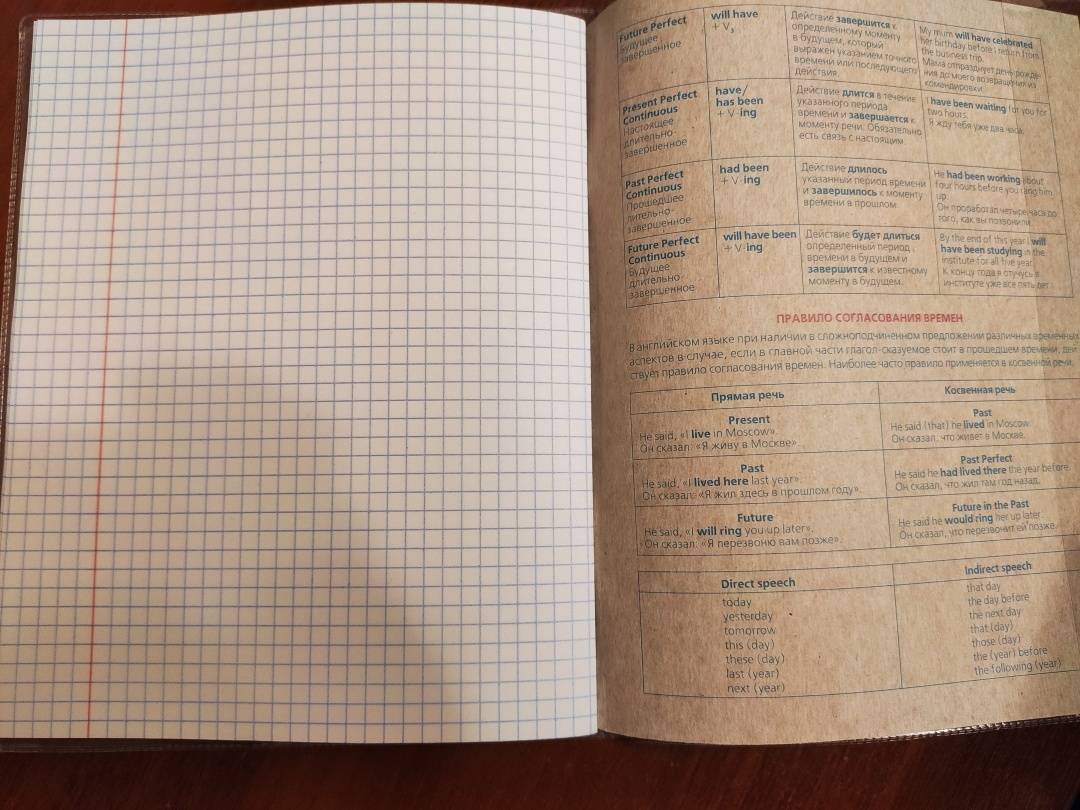 Future Perfect
Будущее
завершенное
will have
+ V₃
Действие завершится к
определенному моменту
в будущем, который
выражен указанием точного
времени или последующего
действия.
My mum will have celebrated
her birthday before I return from
the business trip.
Мама отпразднует день рожде-
ния до моего возвращения из
командировки.
Present Perfect
Continuous
Настоящее
длительно-
завершенное
have/
has been
+ V-ing
Действие длится в течение
указанного периода
времени и завершается к
моменту речи. Обязательно
есть связь с настоящим.
I have been waiting for you for
two hours.
Я жду тебя уже два часа.
Past Perfect
Continuous
Прошедшее
длительно-
завершенное
had been
+ V-ing
Действие длилось
указанный период времени
и завершилось к моменту
времени в прошлом.
He had been working about
four hours before you rang him
up.
Он проработал четыре часа до
того, как вы позвонили.
Future Perfect
Continuous
Будущее
длительно-
завершенное
will have been
+ V-ing
Действие будет длиться
определенный период
времени в будущем и
завершится к известному
моменту в будущем.
By the end of this year I will
have been studying in the
institute for all five year.
К концу года я отучусь в
институте уже все пять лет.
ПРАВИЛО СОГЛАСОВАНИЯ ВРЕМЕН
В английском языке при наличии в сложноподчиненном предложении различных временных
аспектов в случае, если в главной части глагол-сказуемое стоит в прошедшем времени, дей-
ствует правило согласования времен. Наиболее часто правило применяется в косвенной речи.
Прямая речь
Косвенная речь
Present
He said, «I live in Moscow».
Он сказал: «Я живу в Москве».
Past
He said (that) he lived in Moscow.
Он сказал, что живет в Москве.
Past
He said, «I lived here last year».
Он сказал: «Я жил здесь в прошлом году».
Past Perfect
He said he had lived there the year before.
Он сказал, что жил там год назад.
Future
He said, «I will ring you up later».
Он сказал: «Я перезвоню вам позже».
Future in the Past
He said he would ring her up later.
Он сказал, что перезвонит ей позже.
Direct speech
Indirect speech
today
that day
yesterday
the day before
tomorrow
the next day
this (day)
that (day)
these (day)
those (day)
last (year)
the (year) before
next (year)
the following (year)